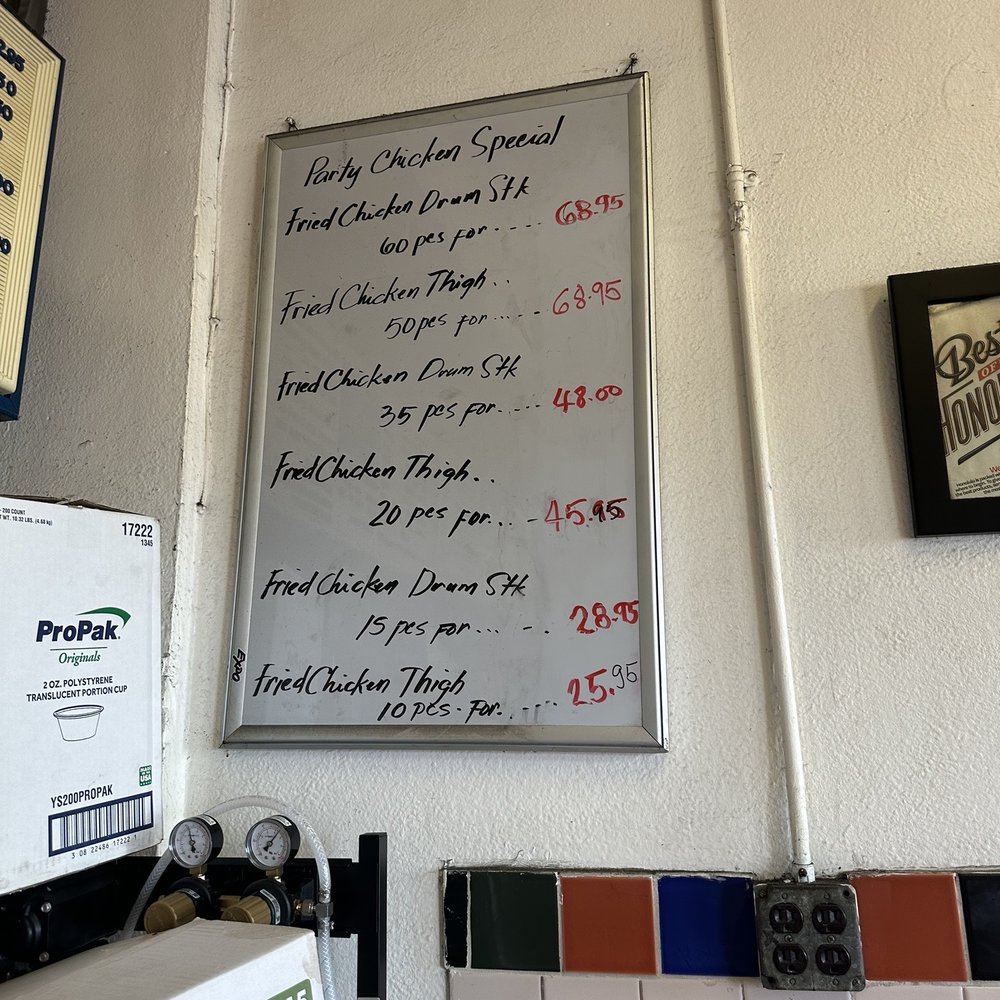 Party Chicken Special
Fried Chicken Drum Stk
60 pcs for..... 68.95
Fried Chicken Thigh..
50 pcs for..... - 68.95
Fried Chicken Drum Stk
35 pcs for..... 48.00
Fried Chicken Thigh..
20 pcs for... - 45.95
Fried Chicken Drum Stk
15 pcs for... -.. 28.95
Fried Chicken Thigh
10 pcs. For..---- 25.95
Expo
200 COUNT
WT. 10.32 LBS. (4.68 kg)
17222
1345
ProPak
Originals
2 OZ. POLYSTYRENE
TRANSLUCENT PORTION CUP
MADE IN USA
YS200PROPAK
3 08 22486 17222 1
Best
OF
HONO